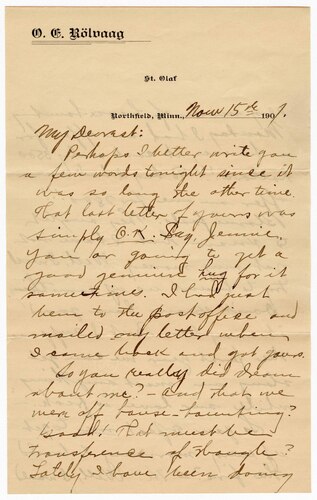 O. E. Rölvaag
St. Olaf
Northfield, Minn., Nov 15th 1907.
My Dearest:
Perhaps I better write you
a few words tonight since it
was so long the other time.
That last letter of yours was
simply O.K. Say, Jennie,
you are going to get a
good genuine hug for it
sometime. I had just
been to the postoffice and
mailed my letter when
I came back and got yours.
So you really did dream
about me? - and that we
were off house-hunting?
Good! That must be
transference of thought?
Lately I have been doing